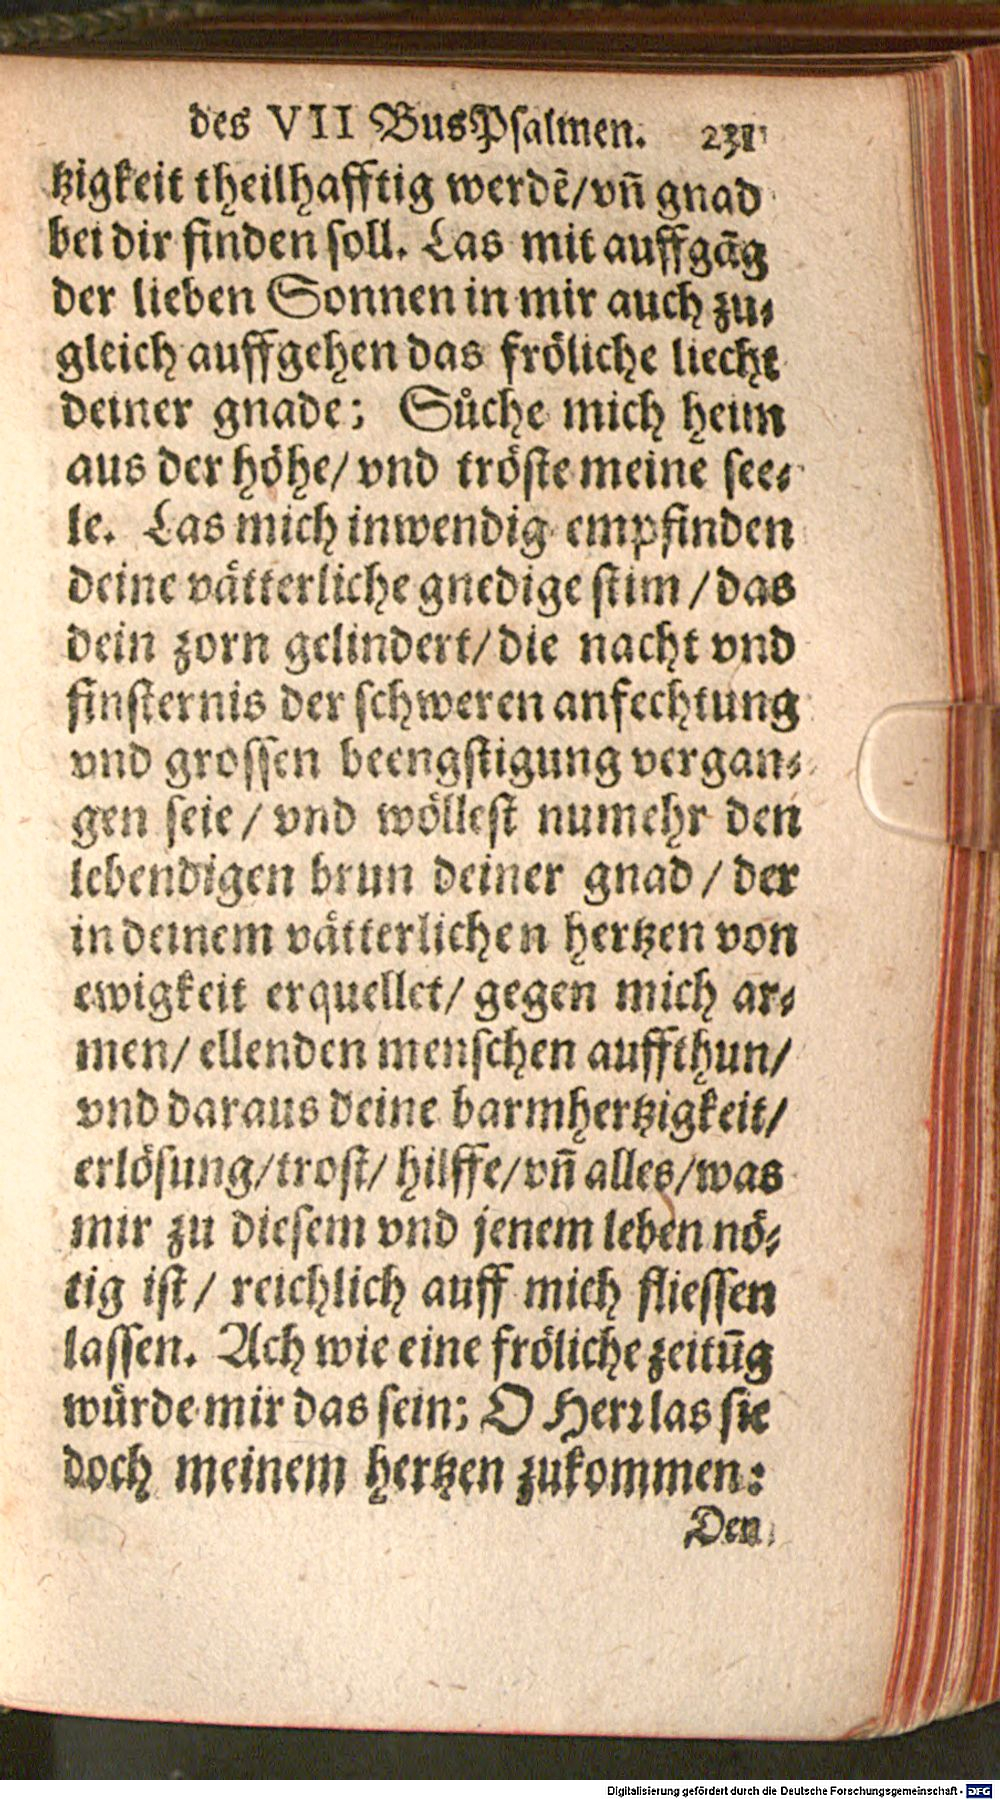 des VII BusPsalmen. 231
tzigkeit theilhafftig werdẽ/vñ gnad
bei dir finden soll. Las mit auffgãg
der lieben Sonnen in mir auch zu⸗
gleich auffgehen das fröliche liecht
deiner gnade; Sůche mich heim
aus der höhe/ vnd tröste meine see⸗
le. Las mich inwendig empfinden
deine vätterliche gnedige stim / das
dein zorn gelindert/ die nacht vnd
finsternis der schweren anfechtung
vnd grossen beengstigung vergan⸗
gen seie / vnd wöllest numehr den
lebendigen brun deiner gnad / der
in deinem vätterlichen hertzen von
ewigkeit erquellet/ gegen mich ar⸗
men/ ellenden menschen auffthun/
vnd daraus deine barmhertzigkeit/
erlösung/trost/ hilffe/vñ alles/was
mir zu diesem vnd jenem leben nö⸗
tig ist/ reichlich auff mich fliessen
lassen. Ach wie eine fröliche zeitūg
würde mir das sein; O Herr las sie
doch meinem hertzen zukommen:
Den
Digitalisierung gefördert durch die Deutsche Forschungsgemeinschaft - DFG